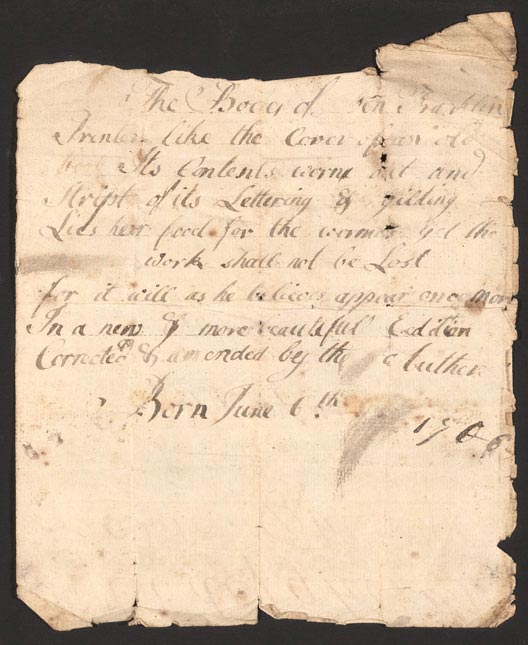 The Body of Ben Franklin
Printer like the Cover of an old
book Its Contents worne out and
stript of its Lettering & gilding
Lies here food for the worms yet the
work shall not be Lost
for it will as he believes appear once more
In a new & more beautifull Eddition
Corrected & amended by the Auther
Born June 6th
1706